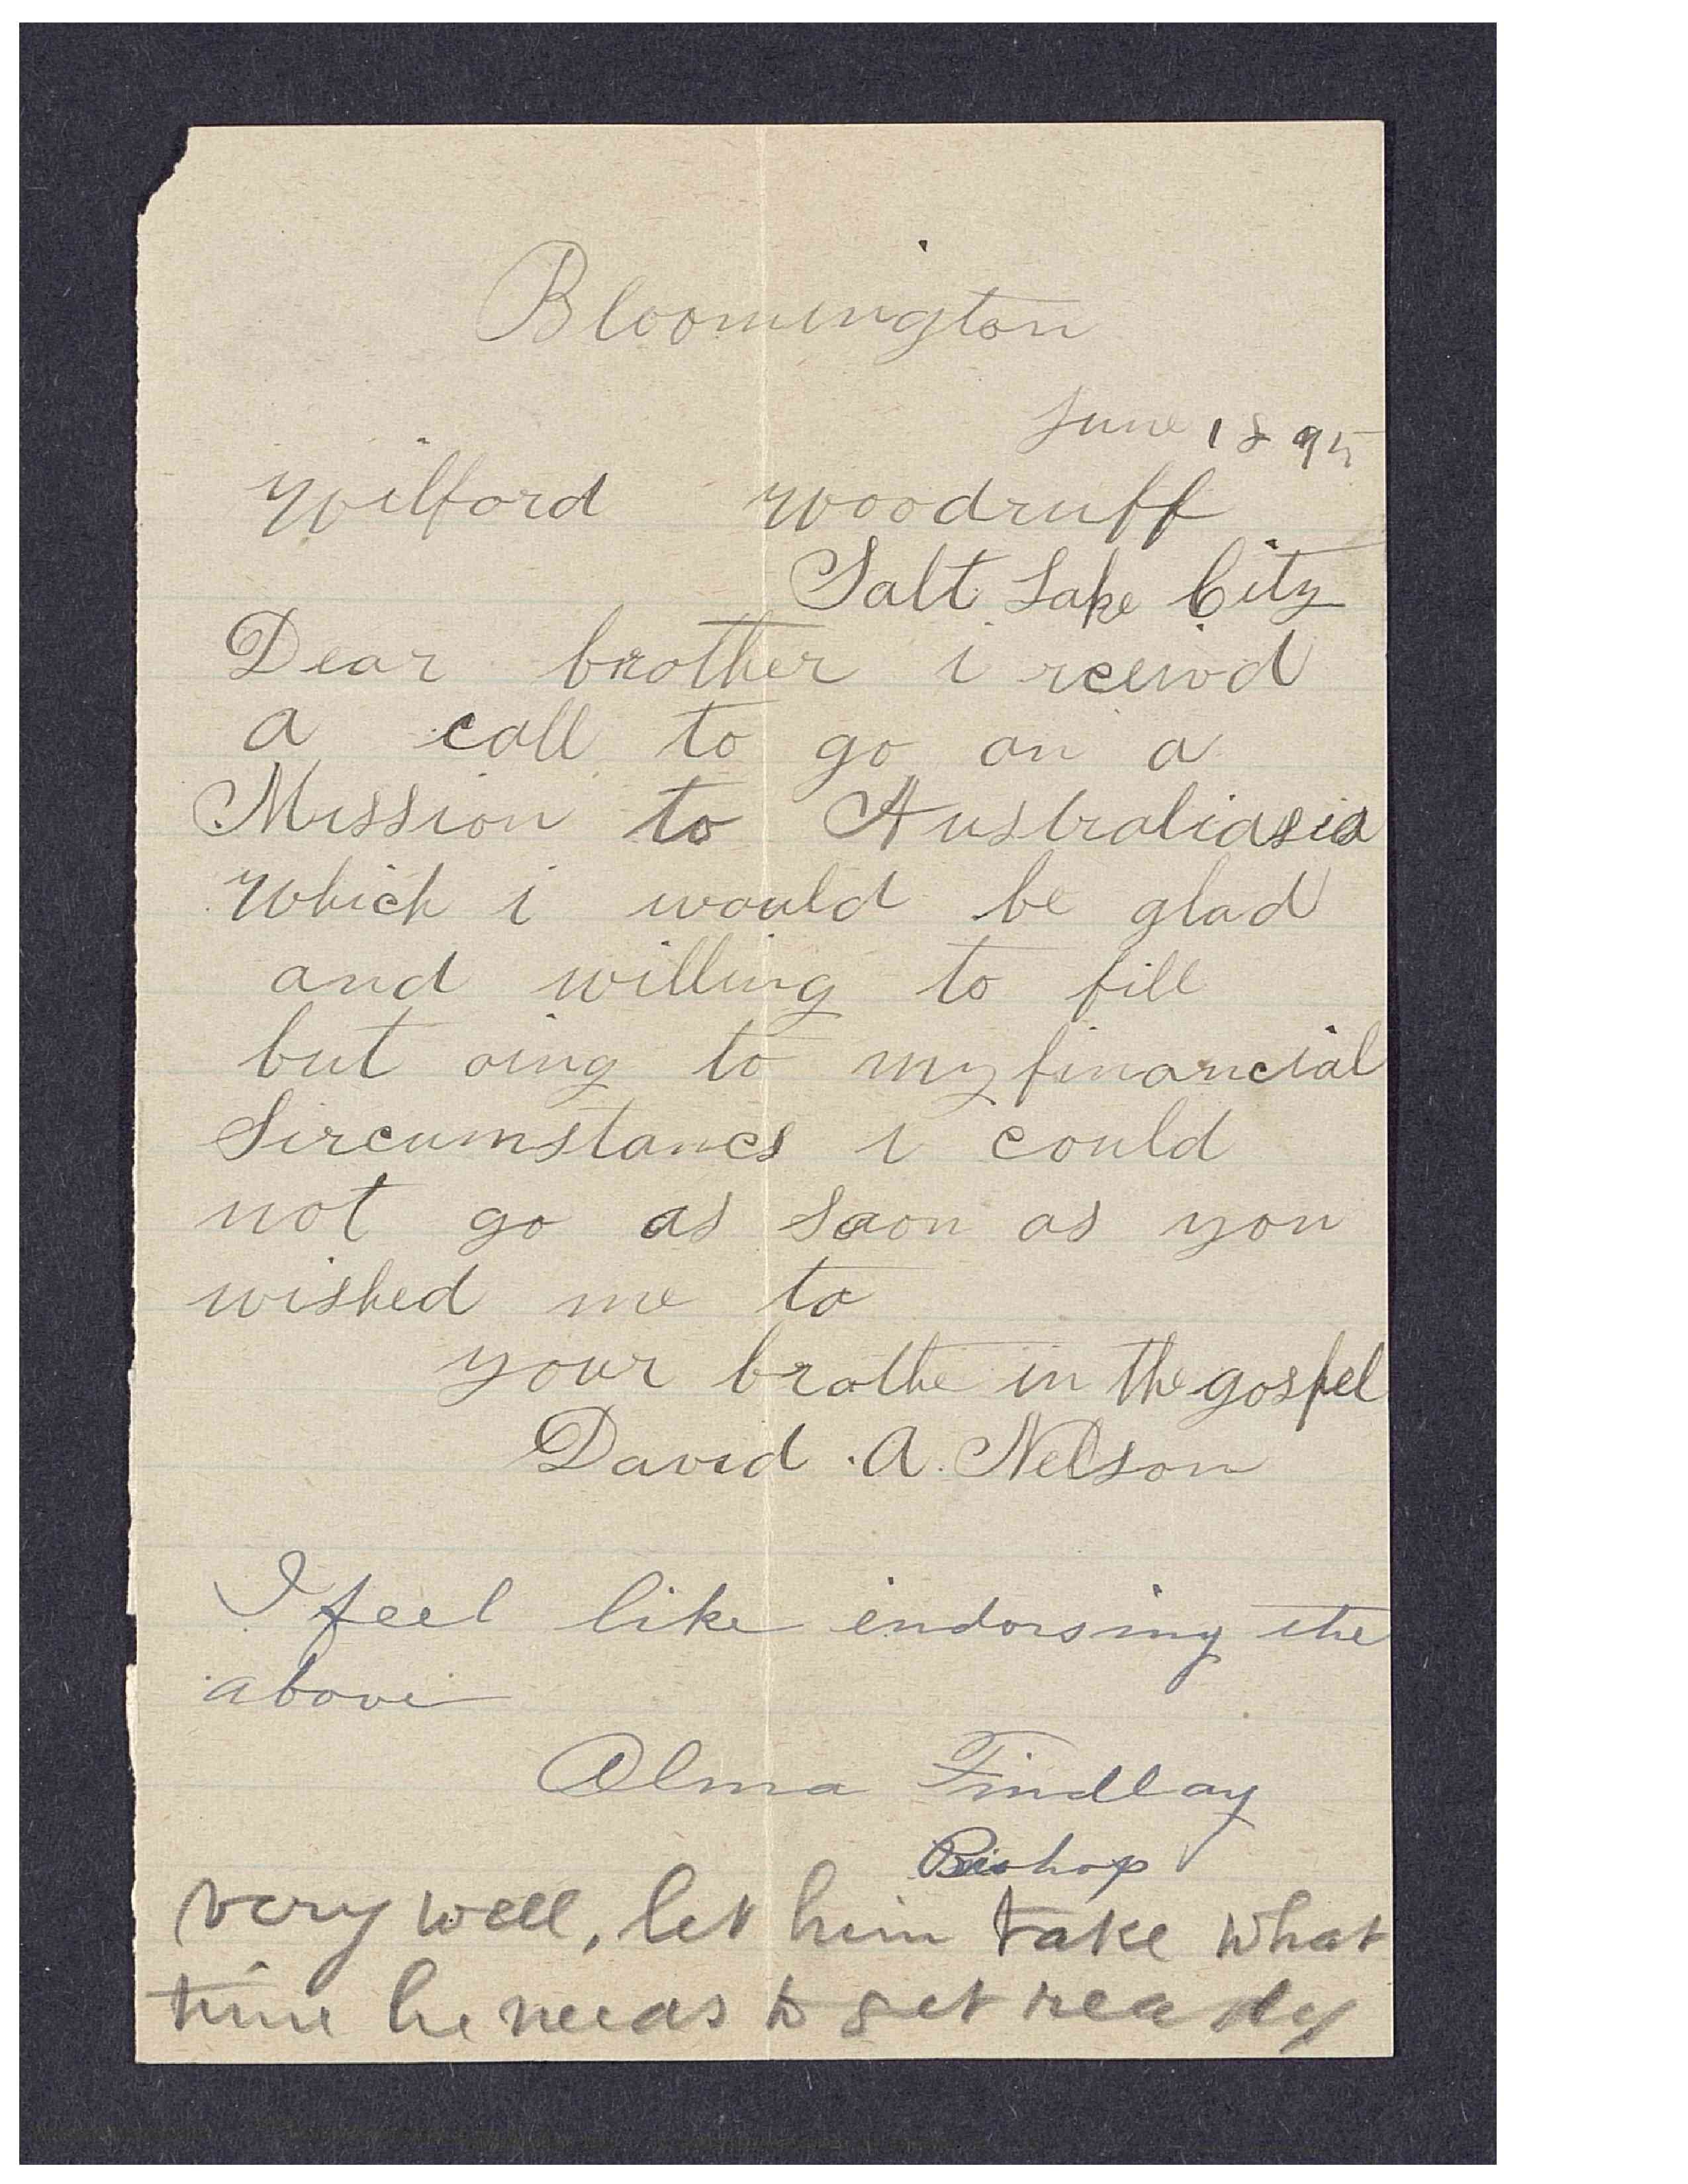 Bloomington
June 1895
Wilford Woodruff
Salt Lake City
Dear brother i rceivd
a call to go on a
Mission to Australiasia
Which i would be glad
and willing to fill
but oing to my financial
Sircumstancs i could
not go as soon as you
wished me to
your brothe in the gospel
David . A. Nelson
I feel like endorsing the
above
Alma Findlay
Bishop
very well, let him take what
time he needs to get ready